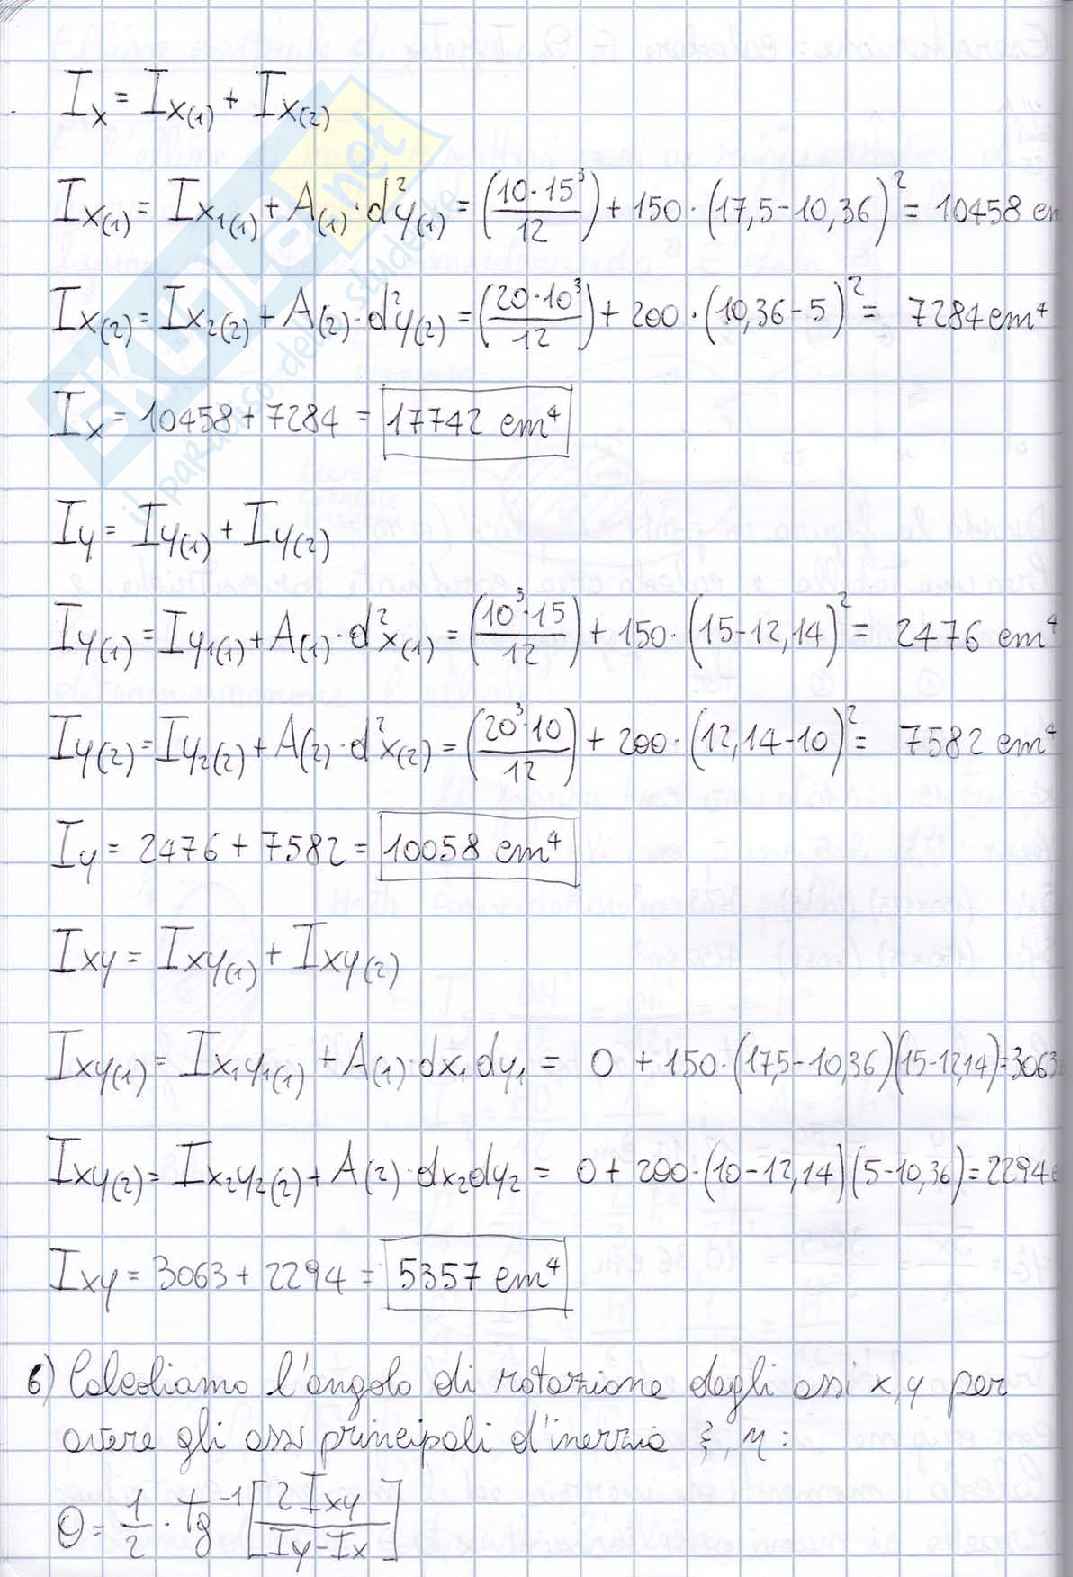 Ix = Ix(1) + Ix(2)
Ix(1) = Ix1(1) + A(1)·d²y(1) = (10·15³/12) + 150·(17,5-10,36)² = 10458 cm
Ix(2) = Ix2(2) + A(2)·d²y(2) = (20·10³/12) + 200·(10,36-5)² = 7284 cm⁴
Ix = 10458 + 7284 = 17742 cm⁴
Iy = Iy(1) + Iy(2)
Iy(1) = Iy1(1) + A(1)·d²x(1) = (10³·15/12) + 150·(15-12,14)² = 2476 cm⁴
Iy(2) = Iy2(2) + A(2)·d²x(2) = (20³·10/12) + 200·(12,14-10)² = 7582 cm⁴
Iy = 2476 + 7582 = 10058 cm⁴
Ixy = Ixy(1) + Ixy(2)
Ixy(1) = Ix1y1(1) + A(1)·dx1dy1 = 0 + 150·(17,5-10,36)(15-12,14) = 3063
Ixy(2) = Ix2y2(2) + A(2)·dx2dy2 = 0 + 200·(10-12,14)(5-10,36) = 2294
Ixy = 3063 + 2294 = 5357 cm⁴
6) Calcoliamo l'angolo di rotazione degli assi x,y per
avere gli assi principali d'inerzia ξ,η:
θ = 1/2 · tg⁻¹[2Ixy/(Iy-Ix)]
SKUOLA.net
il paradiso dello studente